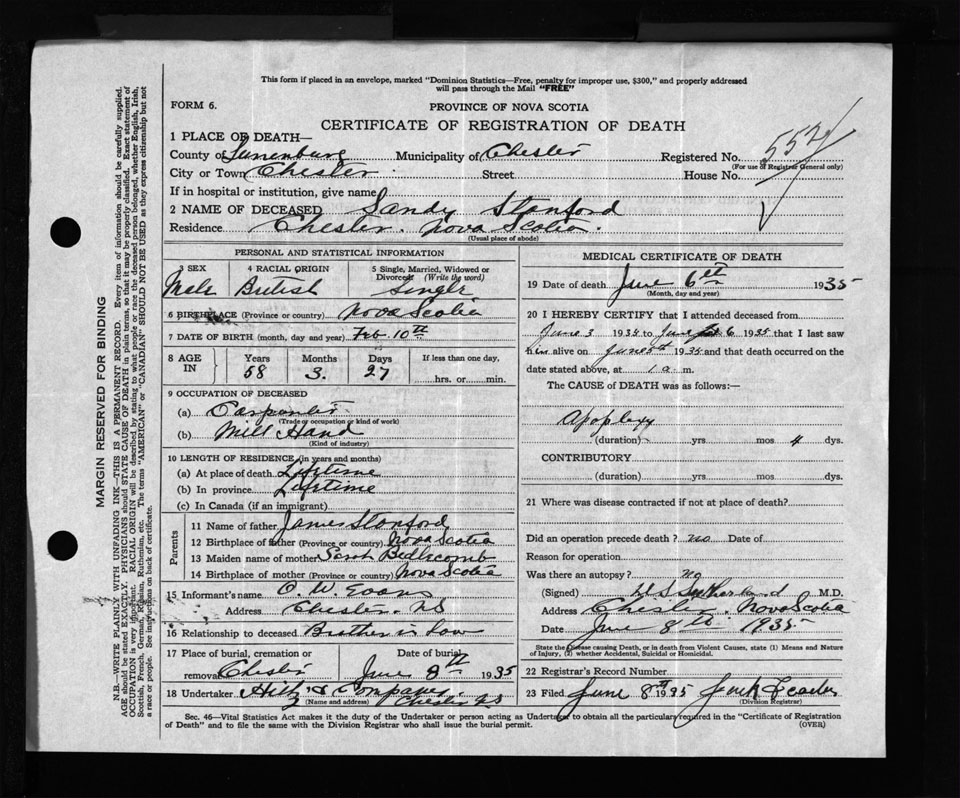 This form if placed in an envelope, marked "Dominion Statistics—Free, penalty for improper use, $300," and properly addressed
will pass through the Mail "FREE"
FORM 6.
PROVINCE OF NOVA SCOTIA
CERTIFICATE OF REGISTRATION OF DEATH
1 PLACE OF DEATH—
County of Lunenburg Municipality of Chester Registered No. 5524
(For use of Registrar General only)
City or Town Chester Street House No.
If in hospital or institution, give name
2 NAME OF DECEASED Sandy Stanford
Residence Chester. Nova Scotia.
(Usual place of abode)
PERSONAL AND STATISTICAL INFORMATION
3 SEX 4 RACIAL ORIGIN 5 Single, Married, Widowed or
Divorced (Write the word)
Male British Single
6 BIRTHPLACE (Province or country) Nova Scotia
7 DATE OF BIRTH (month, day and year) Feb 10th
8 AGE IN Years Months Days If less than one day,
58 3. 27 hrs. or min.
9 OCCUPATION OF DECEASED
(a) Carpenter
(Trade or occupation or kind of work)
(b) Mill Hand
(Kind of industry)
10 LENGTH OF RESIDENCE (in years and months)
(a) At place of death Lifetime
(b) In province Lifetime
(c) In Canada (if an immigrant)
Parents
11 Name of father James Stanford
12 Birthplace of father (Province or country) Nova Scotia
13 Maiden name of mother Sarah
14 Birthplace of mother (Province or country) Nova Scotia
15 Informant's name O. W. Evans
Address Chester. NS
16 Relationship to deceased Brother in Law
17 Place of burial, cremation or Date of burial
removal Chester June 8th 1935
18 Undertaker Hiltz & Company.
(Name and address) Chester NS
MEDICAL CERTIFICATE OF DEATH
19 Date of death June 6th 1935
(Month, day and year)
20 I HEREBY CERTIFY that I attended deceased from
June 3 1935 to June 6 1935 that I last saw
him alive on June 5th 1935 and that death occurred on the
date stated above, at 1 a m.
The CAUSE of DEATH was as follows:—
Apoplexy
(duration) yrs mos 4 dys.
CONTRIBUTORY
(duration) yrs mos dys.
21 Where was disease contracted if not at place of death?
Did an operation precede death? no Date of
Reason for operation
Was there an autopsy? no
(Signed) Sutherland M.D.
Address Chester, Nova Scotia
Date June 8th 1935
State the Disease causing Death, or in death from Violent Causes, state (1) Means and Nature
of Injury, (2) whether Accidental, Suicidal or Homicidal.
22 Registrar's Record Number
23 Filed June 8th 1935
(Division Registrar)
Sec. 46—Vital Statistics Act makes it the duty of the Undertaker or person acting as Undertaker to obtain all the particulars required in the "Certificate of Registration
of Death" and to file the same with the Division Registrar who shall issue the burial permit. (OVER)
MARGIN RESERVED FOR BINDING
N.B.—WRITE PLAINLY WITH UNFADING INK—THIS IS A PERMANENT RECORD. Every item of information should be carefully supplied.
AGE should be stated EXACTLY. PHYSICIANS should STATE CAUSE OF DEATH in plain terms, so that it may be properly classified. Exact statement of
OCCUPATION is very important. RACIAL ORIGIN will be described by stating to what people or race the deceased person belonged, whether English, Irish,
Scottish, French, German, Russian, Ruthenian, etc. The terms "AMERICAN" or "CANADIAN" SHOULD NOT BE USED as they express citizenship but not
a race or people. See instructions on back of certificate.